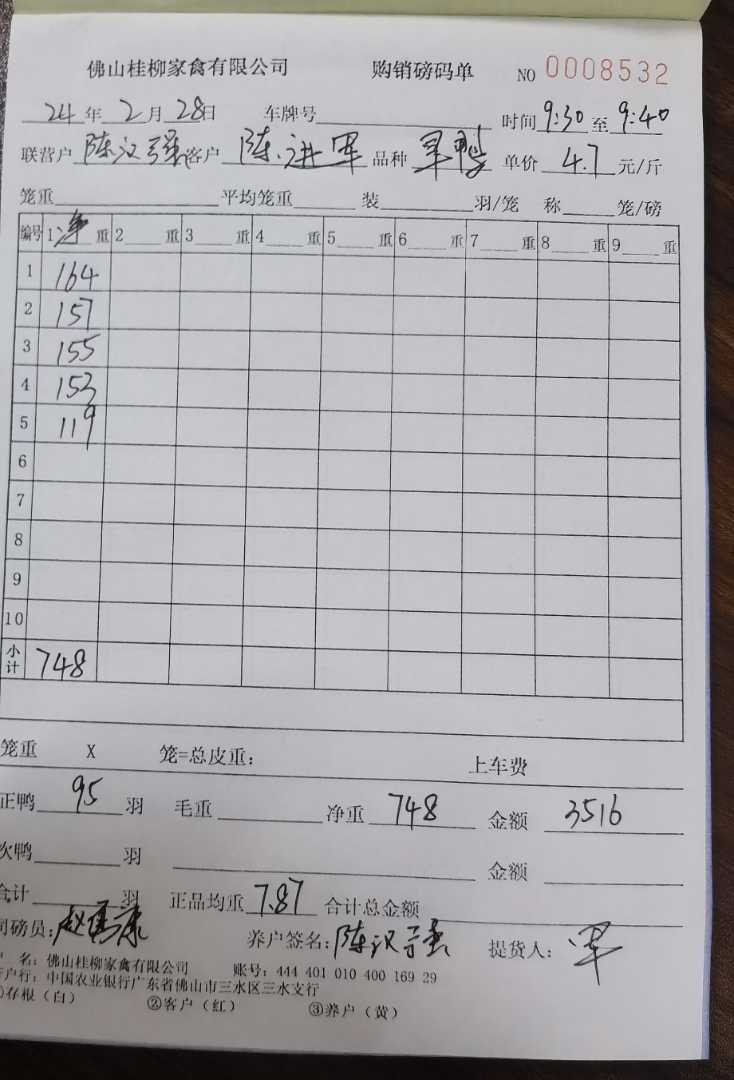 佛山桂柳家禽有限公司 购销磅码单 NO 0008532
24 年 2 月 28日 车牌号 时间 9:30 至 9:40
联营户 陈汉强 客户 陈进军 品种 单价 4.7 元/斤
笼重 平均笼重 装 羽/笼 称 笼/磅
编号 1 净 重 2 重 3 重 4 重 5 重 6 重 7 重 8 重 9 重
1 164
2 157
3 155
4 153
5 119
6
7
8
9
10
小计 748
笼重 X 笼=总皮重： 上车费
正鸭 95 羽 毛重 净重 748 金额 3516
次鸭 羽 金额
合计 羽 正品均重 7.87 合计总金额
司磅员： 养户签名：陈汉强 提货人：军
户 名：佛山桂柳家禽有限公司 账号：444 401 010 400 169 29
开户行：中国农业银行广东省佛山市三水区三水支行
①存根（白） ②客户（红） ③养户（黄）